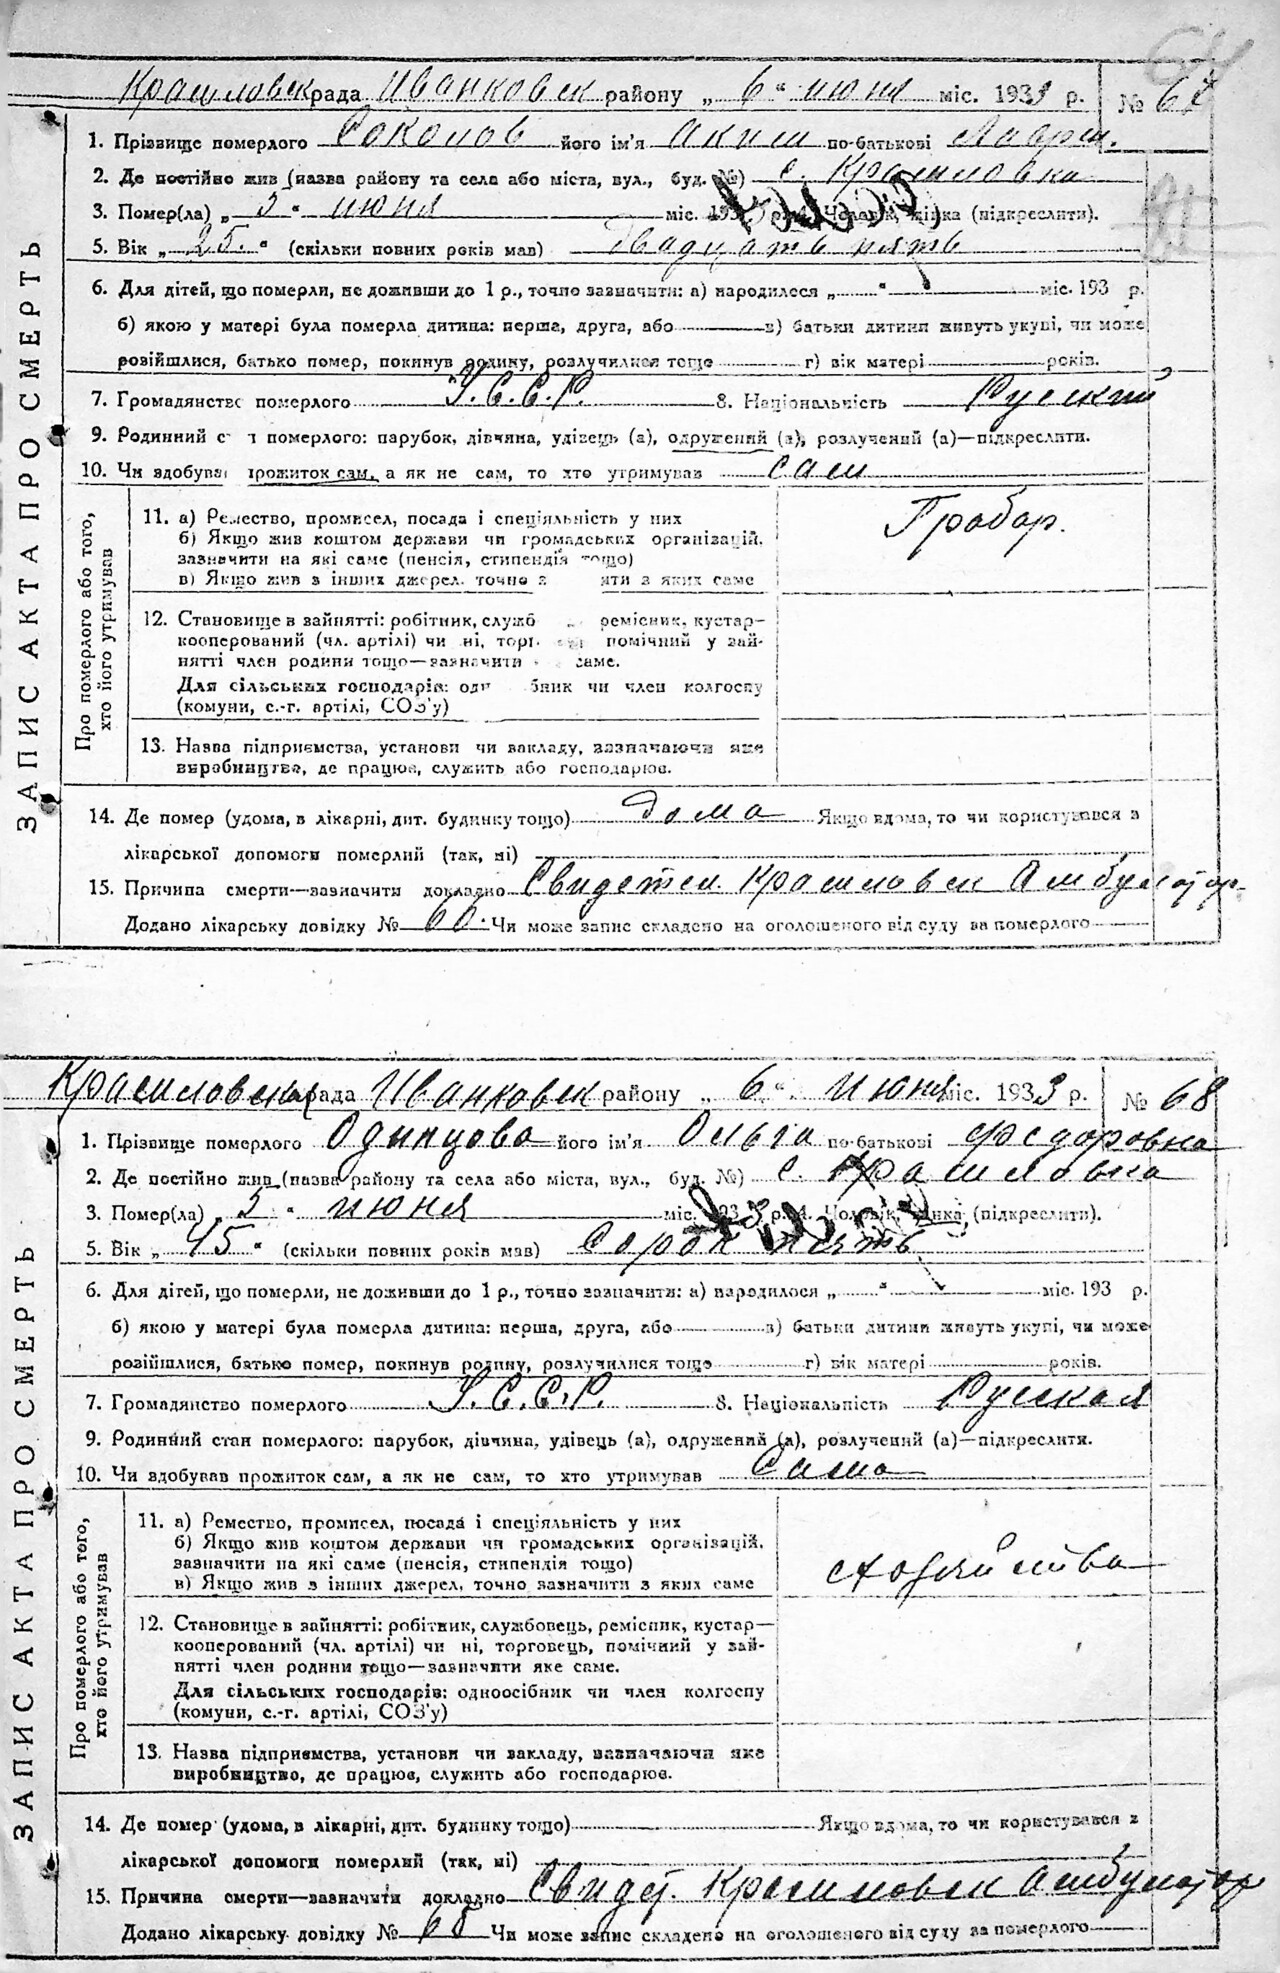 64
Красиловск рада Иванковск району „ 6 “ июня міс. 1933 р. № 67
1. Прізвище померлого Соколов його ім'я Аким по-батькові Лаврен.
2. Де постійно жив (назва району та села або міста, вул., буд. №) с. Красиловка
3. Помер(ла) „ 5 “ июня міс. 193 р. 4. Чоловік, жінка (підкреслити).
5. Вік „ 25. “ (скільки повних років мав) двадцать пять
6. Для дітей, що померли, не доживши до 1 р., точно зазначити: а) народилося „ “ міс. 193 р.
б) якою у матері була померла дитина: перша, друга, або в) батьки дитини живуть укупі, чи може
розійшлися, батько помер, покинув родину, розлучилися тощо г) вік матері років.
7. Громадянство померлого У.С.С.Р. 8. Національність Руский
9. Родинний с н померлого: парубок, дівчина, удівець (а), одружений (а), розлучений (а)—підкреслити.
10. Чи здобував прожиток сам, а як не сам, то хто утримував сам
ЗАПИС АКТА ПРО СМЕРТЬ
Про померлого або того, хто його утримував
11. а) Ремество, промисел, посада і спеціяльність у них Грабар.
б) Якщо жив коштом держави чи громадських організацій,
зазначити на які саме (пенсія, стипендія тощо)
в) Якщо жив з інших джерел, точно з яти з яких саме
12. Становище в зайнятті: робітник, служб ремісник, кустар—
кооперований (чл. артілі) чи ні, торг помічний у зай-
нятті член родини тощо—зазначити саме.
Для сільських господарів: одн бник чи член колгоспу
(комуни, с.-г. артілі, СОЗ'у)
13. Назва підприємства, установи чи закладу, зазначаючи яке
виробництва, де працює, служить або господарює.
14. Де помер (удома, в лікарні, дит. будинку тощо) дома Якщо вдома, то чи користувався з
лікарської допомоги померлий (так, ні)
15. Причина смерти—зазначити докладно Свидетел. Красиловск Амбулатор.
Додано лікарську довідку № 60. Чи може запис складено на оголошеного від суду за померлого
Красиловская рада Иванковск району „ 6 “ июня міс. 1933 р. № 68
1. Прізвище померлого Одинцова його ім'я Ольга по-батькові Федоровна
2. Де постійно жив (назва району та села або міста, вул., буд. №) с. Красиловка
3. Помер(ла) 5 “ июня міс. 1933 р. 4. Чоловік, жінка, (підкреслити).
5. Вік „ 45 “ (скільки повних років мав) Сорок пять
6. Для дітей, що померли, не доживши до 1 р., точно зазначити: а) народилося „ “ міс. 193 р.
б) якою у матері була померла дитина: перша, друга, або в) батьки дитини живуть укупі, чи може
розійшлися, батько помер, покинув родину, розлучилися тощо г) вік матері років.
7. Громадянство померлого У.С.С.Р. 8. Національність Руская
9. Родинний стан померлого: парубок, дівчина, удівець (а), одружений (а), розлучений (а)—підкреслити.
10. Чи здобував прожиток сам, а як не сам, то хто утримував Сама
ЗАПИС АКТА ПРО СМЕРТЬ
Про померлого або того, хто його утримував
11. а) Ремество, промисел, посада і спеціяльність у них
б) Якщо жив коштом держави чи громадських організацій,
зазначити на які саме (пенсія, стипендія тощо)
в) Якщо жив з інших джерел, точно зазначити з яких саме
12. Становище в зайнятті: робітник, службовець, ремісник, кустар—
кооперований (чл. артілі) чи ні, торговець, помічний у зай-
нятті член родини тощо—зазначити яке саме.
Для сільських господарів: одноосібник чи член колгоспу
(комуни, с.-г. артілі, СОЗ'у)
13. Назва підприємства, установи чи закладу, зазначаючи яке
виробництво, де працює, служить або господарює.
14. Де помер (удома, в лікарні, дит. будинку тощо) Якщо вдома, то чи користувався з
лікарської допомоги померлий (так, ні)
15. Причина смерти—зазначити докладно Свидет. Красиловск Амбулатор
Додано лікарську довідку № 65 Чи може запис складено на оголошеного від суду за померлого